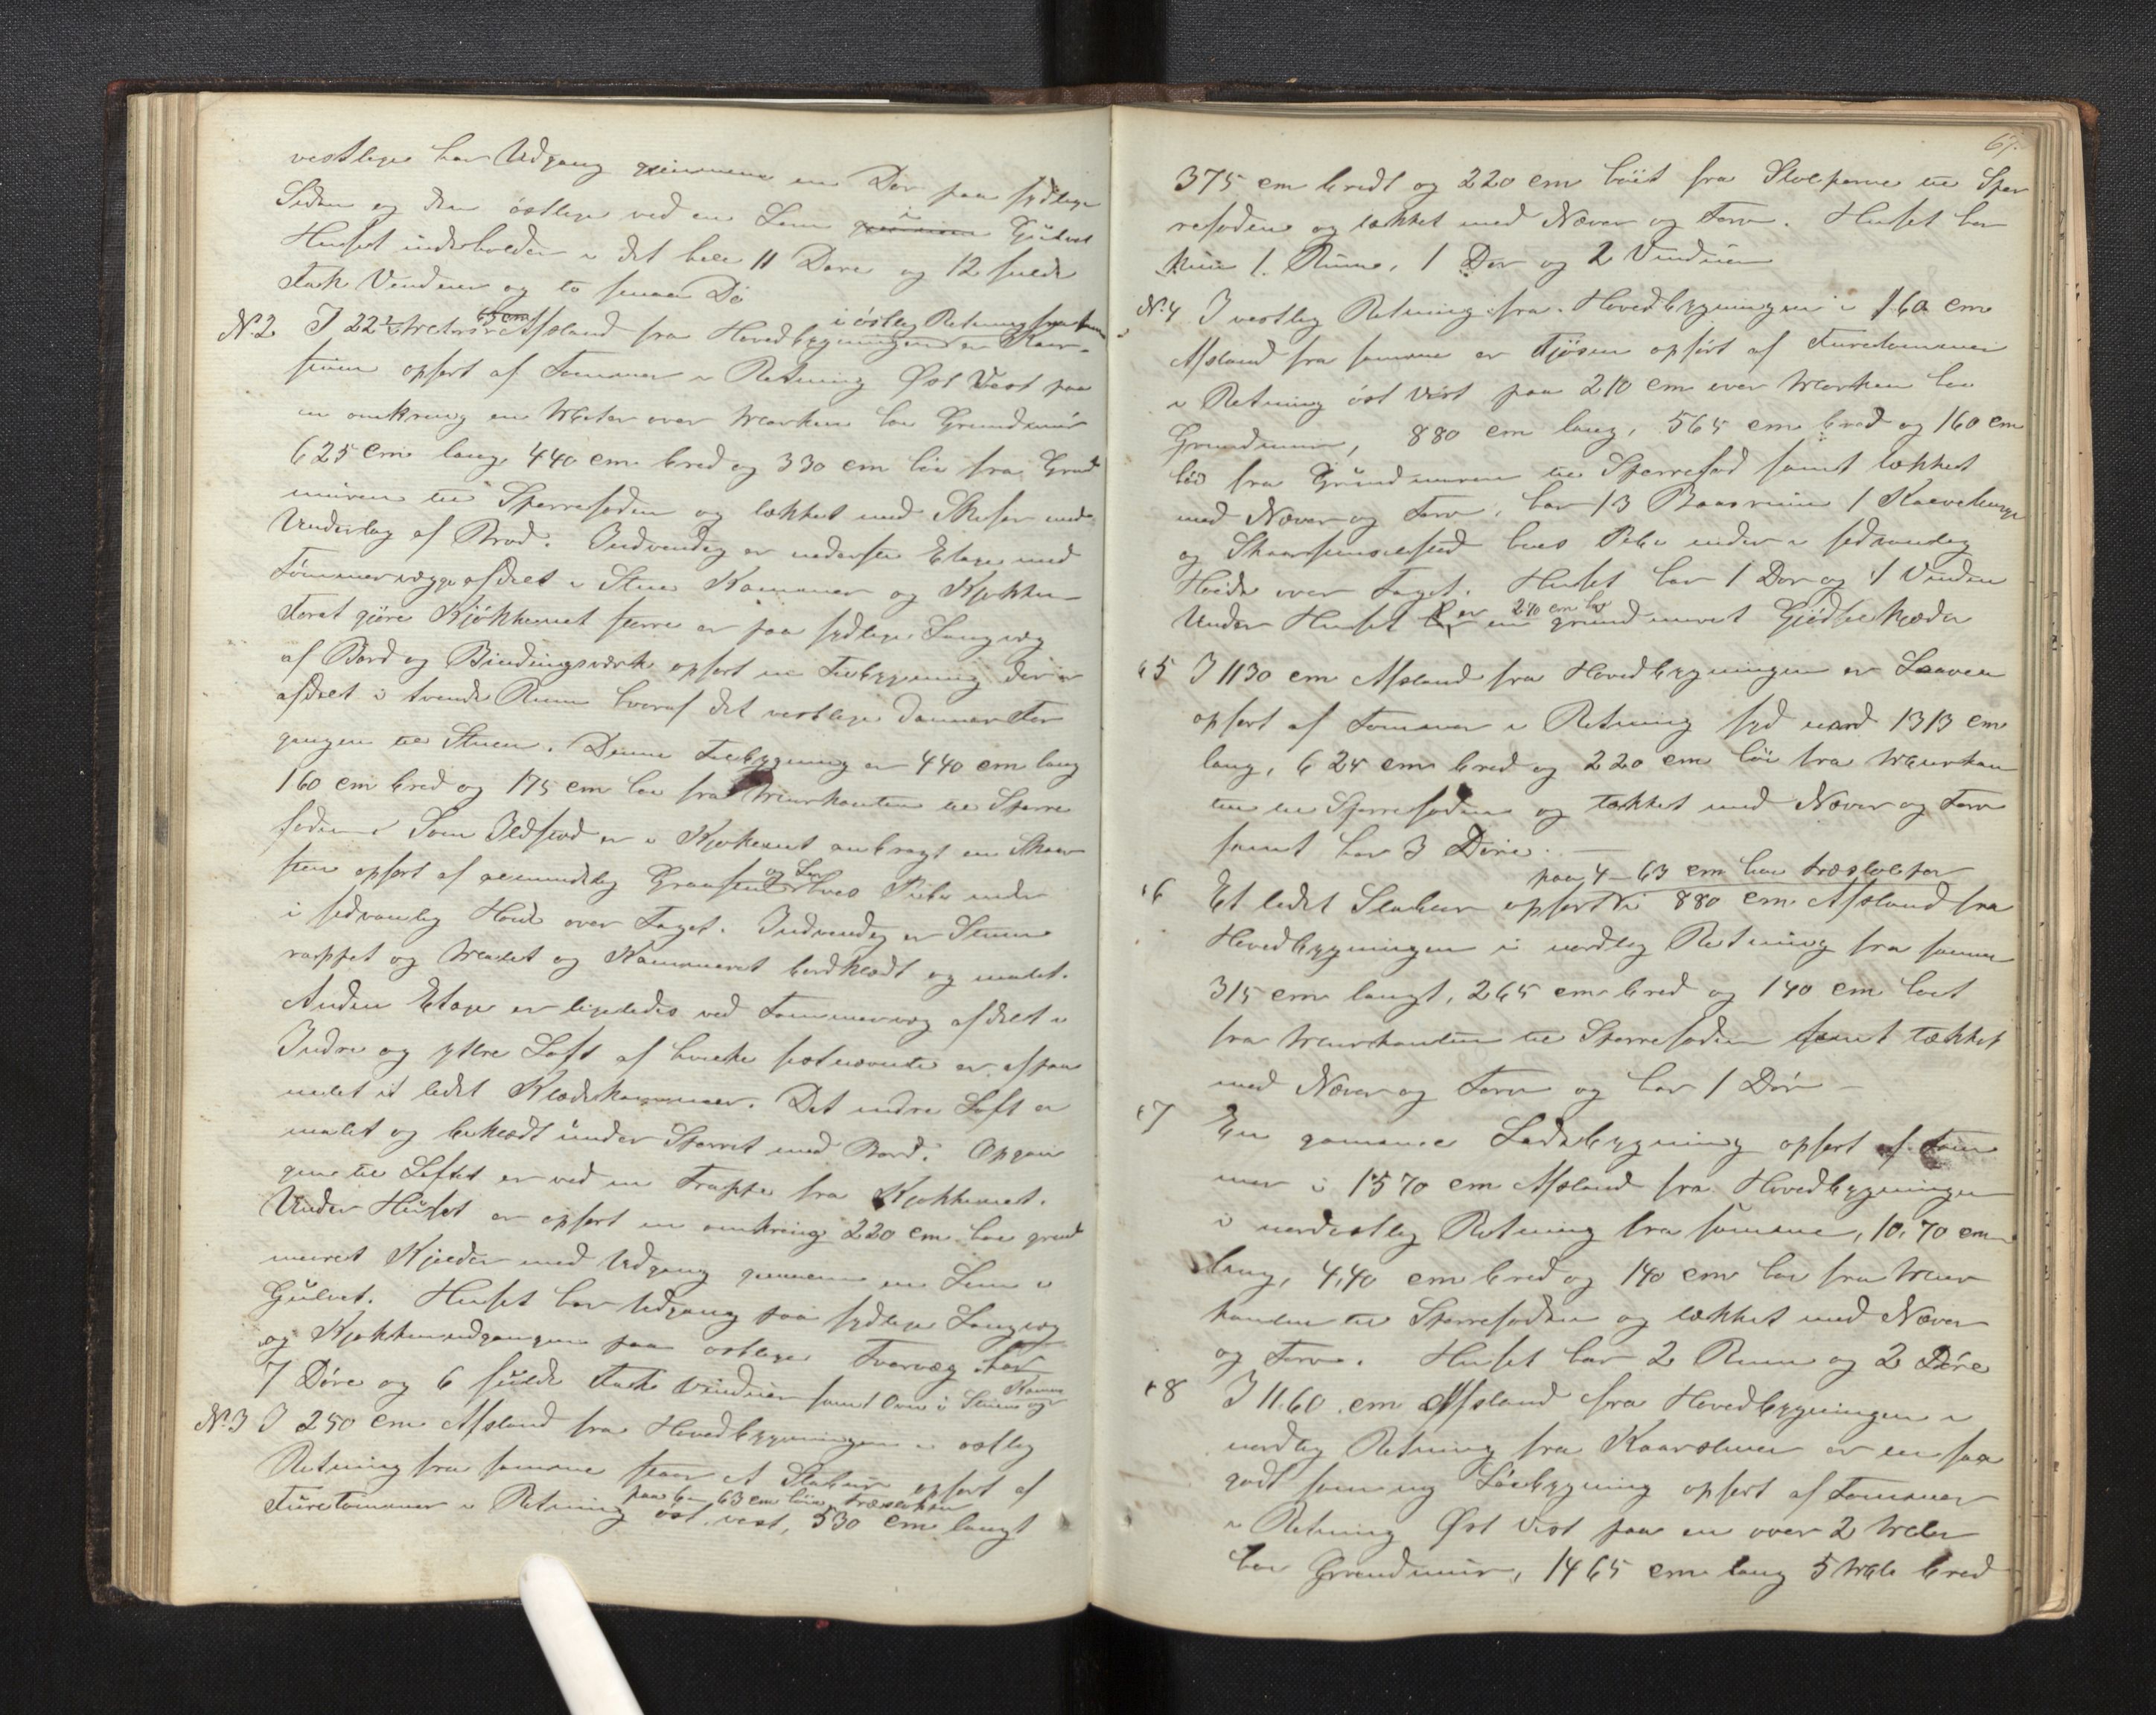 vestlige har Udgang gjennem en Dør paa sydlige
Siden og den östlige ved en Lem i Gulvet
Huset indeholder i det hele 11 Døre og 12 hele
Fack Vinduer og to smaa Do
N. 2 I 22½ Meters Afstand fra Hovedbygningen i östlig Retning fra samme er Kaar-
stuen opført af Tømmer i Retning Øst Vest paa
en omkring en Meter over Marken høi Grundmur
625 cm lang 440 cm bred og 330 cm høi fra Grund
muren til Sperrefoden og tækket med Skifer med
Underlag af Bord. Indvendig er nederste Etage med
Tömmervægge afdelt i Stue Kammer og Kjøkken
Foret gjöre Kjökkenet större er paa sydlige Langvæg
af Bord og Bindingsværk opført en Tilbygning der er
afdelt i tvende Rum hvoraf det vestlige danner For
gangen til Stuen. Denne Tilbygning er 440 cm lang
160 cm bred og 175 cm høi fra Murkanten til Sperre
foden. Som Ildsted er i Kjøkkenet anbragt en Skor
sten opført af almindelig Graasten og Ler hvis Pibe ender
i sedvanlig Høide over Taget. Indvendig er Stuen
rappet og Malet og Kammeret bordklædt og malet.
Anden Etage er ligeledes ved Tømmervæg afdelt i
Indre og ytre Loft af hvilke sistnævnte er afpa
nelet et lidet Klædekammer. Det indre Loft er
malet og beklædt under Sperret med Bord. Opgan
gen til Loftet er ved en Trappe fra Kjøkkenet.
Under Huset er opført en omkring 220 cm høi grund
muret Kjelder med Udgang gjennem en Lem i
Gulvet. Huset har Udgang paa sydlige Langvæg
og Kjøkkenudgangen paa østlige Tvervæg har
7 Døre og 6 fulde Fack Vinduer samt Ovn i Stuen og Kammer
N. 3 I 250 cm Afstand fra Hovedbygningen i østlig
Retning fra samme staar et Stabur opført af
Furetømmer i Retning øst vest, paa 6 63 cm høie Træstolper 530 cm langt
67.
375 cm bredt og 220 cm høit fra Stolperne til Sper
refoden og tækket med Næver og Torv. Huset har
kun 1. Rum, 1 Dør og 2 Vinduer
N. 4 I vestlig Retning fra Hovedbygningen i 160 cm
Afstand fra samme er Fjøsen opført af Furetømmer
i Retning öst Vest paa 210 cm over Marken høi
Grundmur, 880 cm lang, 565 cm bred og 160 cm
høi fra Grundmuren til Sperrefod samt tækket
med Næver og Torv, har 13 Baasrum 1 Kalvebinge
og Skorstensildsted hvis Pibe ender i sedvanlig
Høide over Taget. Huset har 1 Dør og 1 Vindu
Under Huset er en 210 cm høi grundmuret Gjødselkjelder
" 5 I 1130 cm Afstand fra Hovedbygningen er Laaven
opført af Tømmer i Retning syd nord 1313 cm
lang, 625 cm bred og 220 cm høi fra Murkan
ten til Sperrefoden og tækket med Næver og Torv
samt har 3 Döre. —
" 6 Et lidet Stabur opført paa 4 – 63 cm høie Træstolper i 880 cm Afstand fra
Hovedbygningen i nordlig Retning fra samme
315 cm langt, 265 cm bred og 140 cm høit
fra Murkanten til Sperrefoden samt tækket
med Næver og Torv og har 1 Dör —
" 7 En gammel Ladebygning opført af Tøm
mer i 1570 cm Afstand fra Hovedbygningen
i nordvestlig Retning fra samme, 10,70 cm
lang, 4,40 cm bred og 140 cm høi fra Mur
kanten til Sperrefoden og tækket med Næver
og Torv. Huset har 2 Rum og 2 Döre
" 8 I 11.60 cm Afstand fra Hovedbygningen i
nordlig Retning fra Kaarstuen er en saa
godt som ny Löebygning opført af Tømmer
i Retning Øst Vest paa en over 2 Meter
høi Grundmur, 1465 cm lang 5 Met. bred